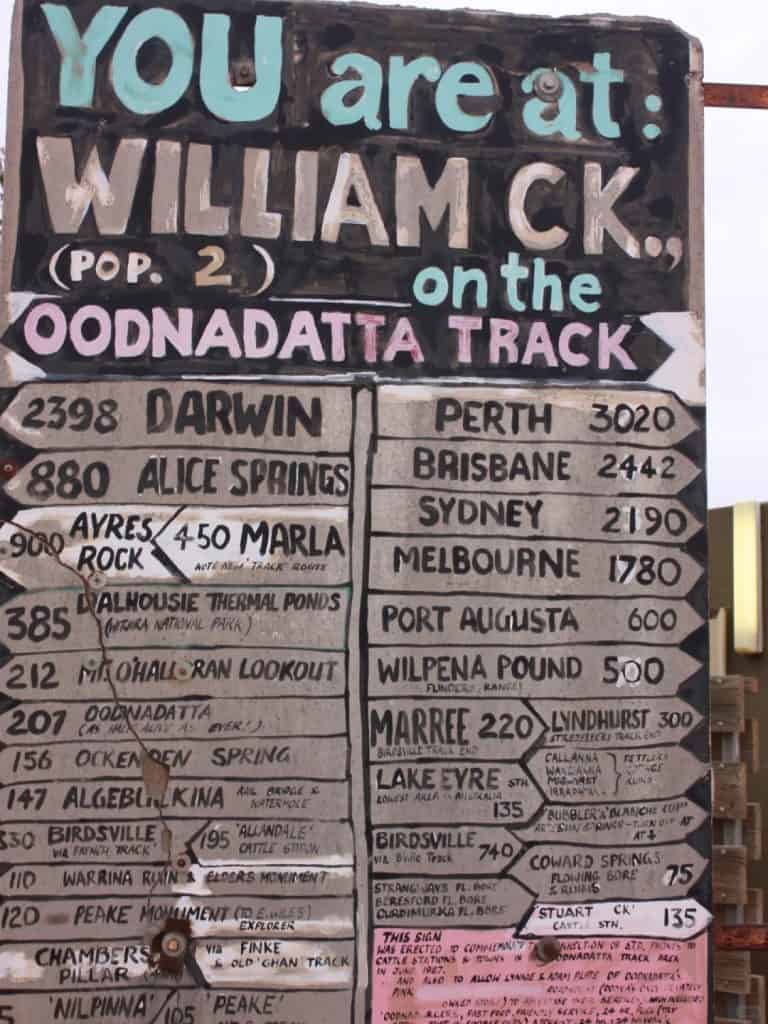 YOU are at:
WILLIAM CK.,
(POP. 2)
on the
OODNADATTA TRACK
2398 DARWIN
880 ALICE SPRINGS
900 AYRES ROCK
450 MARLA
NOTE NEW 'TRACK' ROUTE
385 DALHOUSIE THERMAL PONDS
(WITJIRA NATIONAL PARK)
212 MT. O'HALLORAN LOOKOUT
207 OODNADATTA
(AS HALF ALIVE AS EVER!)
156 OCKENDEN SPRING
147 ALGEBUCKINA RAIL BRIDGE & WATERHOLE
BIRDSVILLE
VIA FRENCH TRACK
195 'ALLANDALE'
CATTLE STATION
110 WARRINA RUIN & ELDERS MONUMENT
120 PEAKE MONUMENT (TO E. GILES)
EXPLORER
CHAMBERS PILLAR
VIA FINKE
& OLD 'GHAN TRACK
'NILPINNA'
105 'PEAKE'
PERTH 3020
BRISBANE 2442
SYDNEY 2190
MELBOURNE 1780
PORT AUGUSTA 600
WILPENA POUND 500
FLINDERS RANGES
MARREE 220
BIRDSVILLE TRACK END
LYNDHURST 300
STRZELECKI TRACK END
LAKE EYRE STH.
LOWEST AREA IN AUSTRALIA
135
CALLANNA
WANGIANNA
FETTLERS
COTTAGE
RUINS
'BUBBLER' & 'BLANCHE CUP'
ARTESIAN SPRINGS - TURN OFF AT
BIRDSVILLE 740
VIA B'ville Track
COWARD SPRINGS
FLOWING BORE
& RUINS
75
STRANGWAYS FL. BORE
BERESFORD FL. BORE
CURDIMURKA FL. BORE
'STUART CK'
CATTLE STN.
135
THIS SIGN
WAS ERECTED TO COMMEMORATE CONNECTION OF STD. PHONES TO
CATTLE STATIONS & TOWNS IN OODNADATTA TRACK AREA
IN JUNE 1987.
AND ALSO TO ALLOW LYNNIE & ADAM PLATE OF OODNADATTA'S
PINK ROADHOUSE